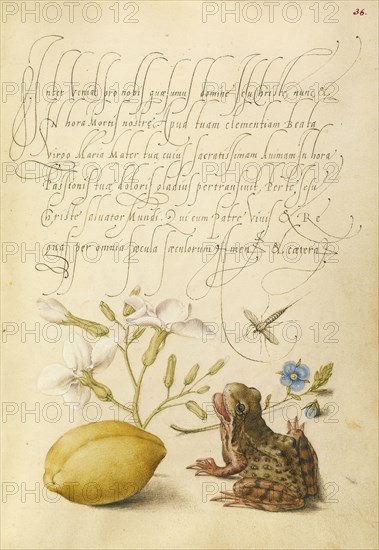 36.
Inter veniat pro nobis quæsumus domine Jesu christe, nunc, et
In hora Mortis nostre, Apud tuam clementiam Beata
Virgo Maria Mater tua cuius sacratissimam Animam in hora
Passionis tuæ doloris gladius pertransivit. Per te, Jesu
Christe salvator Mundi. Qui cum Patre vivis & Re
gnas per omnia sæcula sæculorum Amen. & cætera.